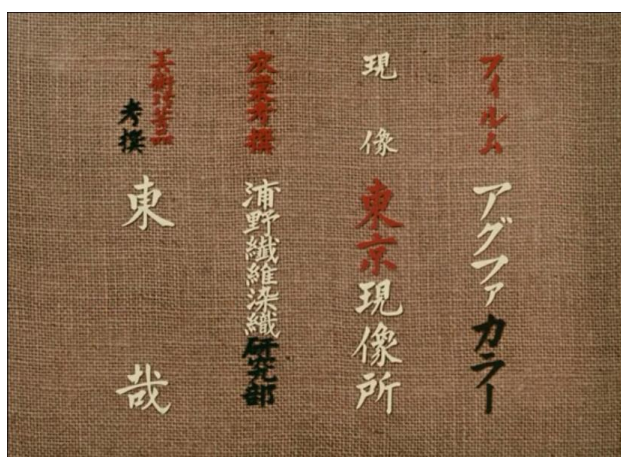 フィルム アグファカラー
現像 東京現像所
衣裳考撰 浦野繊維染織研究部
美術工芸品考撰 東哉